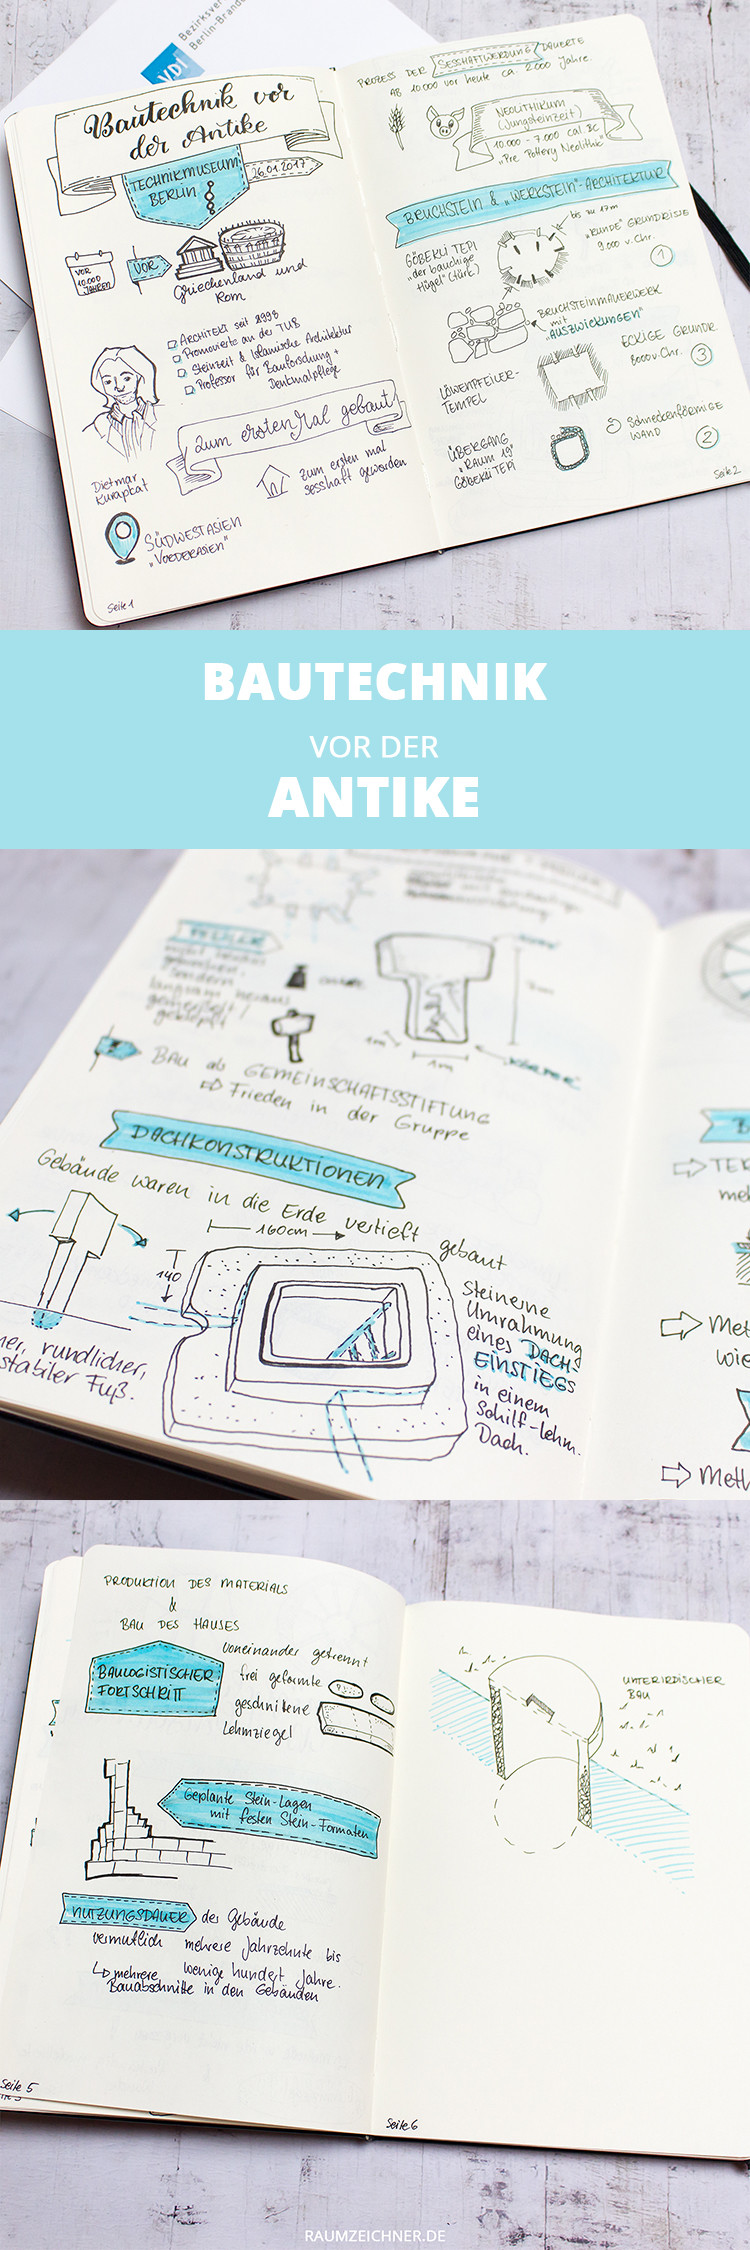 Bezirksver
Berlin-Brand
VDI
Bautechnik vor
der Antike
TECHNIKMUSEUM
BERLIN
26.01.2017
VOR
10.000
JAHREN
VOR
Griechenland und
Rom
ARCHITEKT seit 1998
Promovierte an der TUB
Steinzeit & Islamische Architektur
Professor für Bauforschung +
Denkmalpflege
Zum ersten Mal gebaut!
zum ersten mal
sesshaft geworden
Dietmar
Kurapkat
SÜDWESTASIEN
„VORDERASIEN"
Seite 1
PROZESS DER SESSHAFTWERDUNG DAUERTE
AB 10.000 vor heute ca. 2000 Jahre.
NEOLITHIKUM
(Jungsteinzeit)
10.000 - 7.000 cal. BC
"Pre Pottery Neolithic"
BRUCHSTEIN & „WERKSTEIN"-ARCHITEKTUR
GÖBEKLI TEPI
„der bauchige
Hügel" (türk.)
bis zu 17m
"RUNDE" GRUNDRISSE
9.000 v. Chr.
1
BRUCHSTEINMAUERWERK
mit
"AUSZWICKUNGEN"
ECKIGE GRUNDR
8000 v. Chr.
3
LÖWENPFEILER-
TEMPEL
Schneckenförmige
WAND
2
ÜBERGANG
„RAUM 19"
GÖBEKLI TEPI
Seite 2
BAUTECHNIK
VOR DER
ANTIKE
1m
1m
BAU als GEMEINSCHAFTSSTIFTUNG
Frieden in der Gruppe
DACHKONSTRUKTIONEN
Gebäude waren in die Erde vertieft gebaut
160cm
140
Steinerne
Umrahmung
eines DACH-
EINSTIEGS
in einem
Schilf-Lehm-
Dach.
ner, rundlicher,
stabiler Fuß.
B
TER
meh
Met
wie
Meth
PRODUKTION DES MATERIALS
&
BAU DES HAUSES
BAULOGISTISCHER
FORTSCHRITT
voneinander getrennt
frei geformte
geschnittene
Lehmziegel
Geplante Stein-Lagen
mit festen Stein-Formaten
NUTZUNGSDAUER der Gebäude
vermutlich mehrere Jahrzehnte bis
wenige hundert Jahre.
mehrere
Bauabschnitte in den Gebäuden
Seite 5
UNTERIRDISCHER
BAU
Seite 6
RAUMZEICHNER.DE